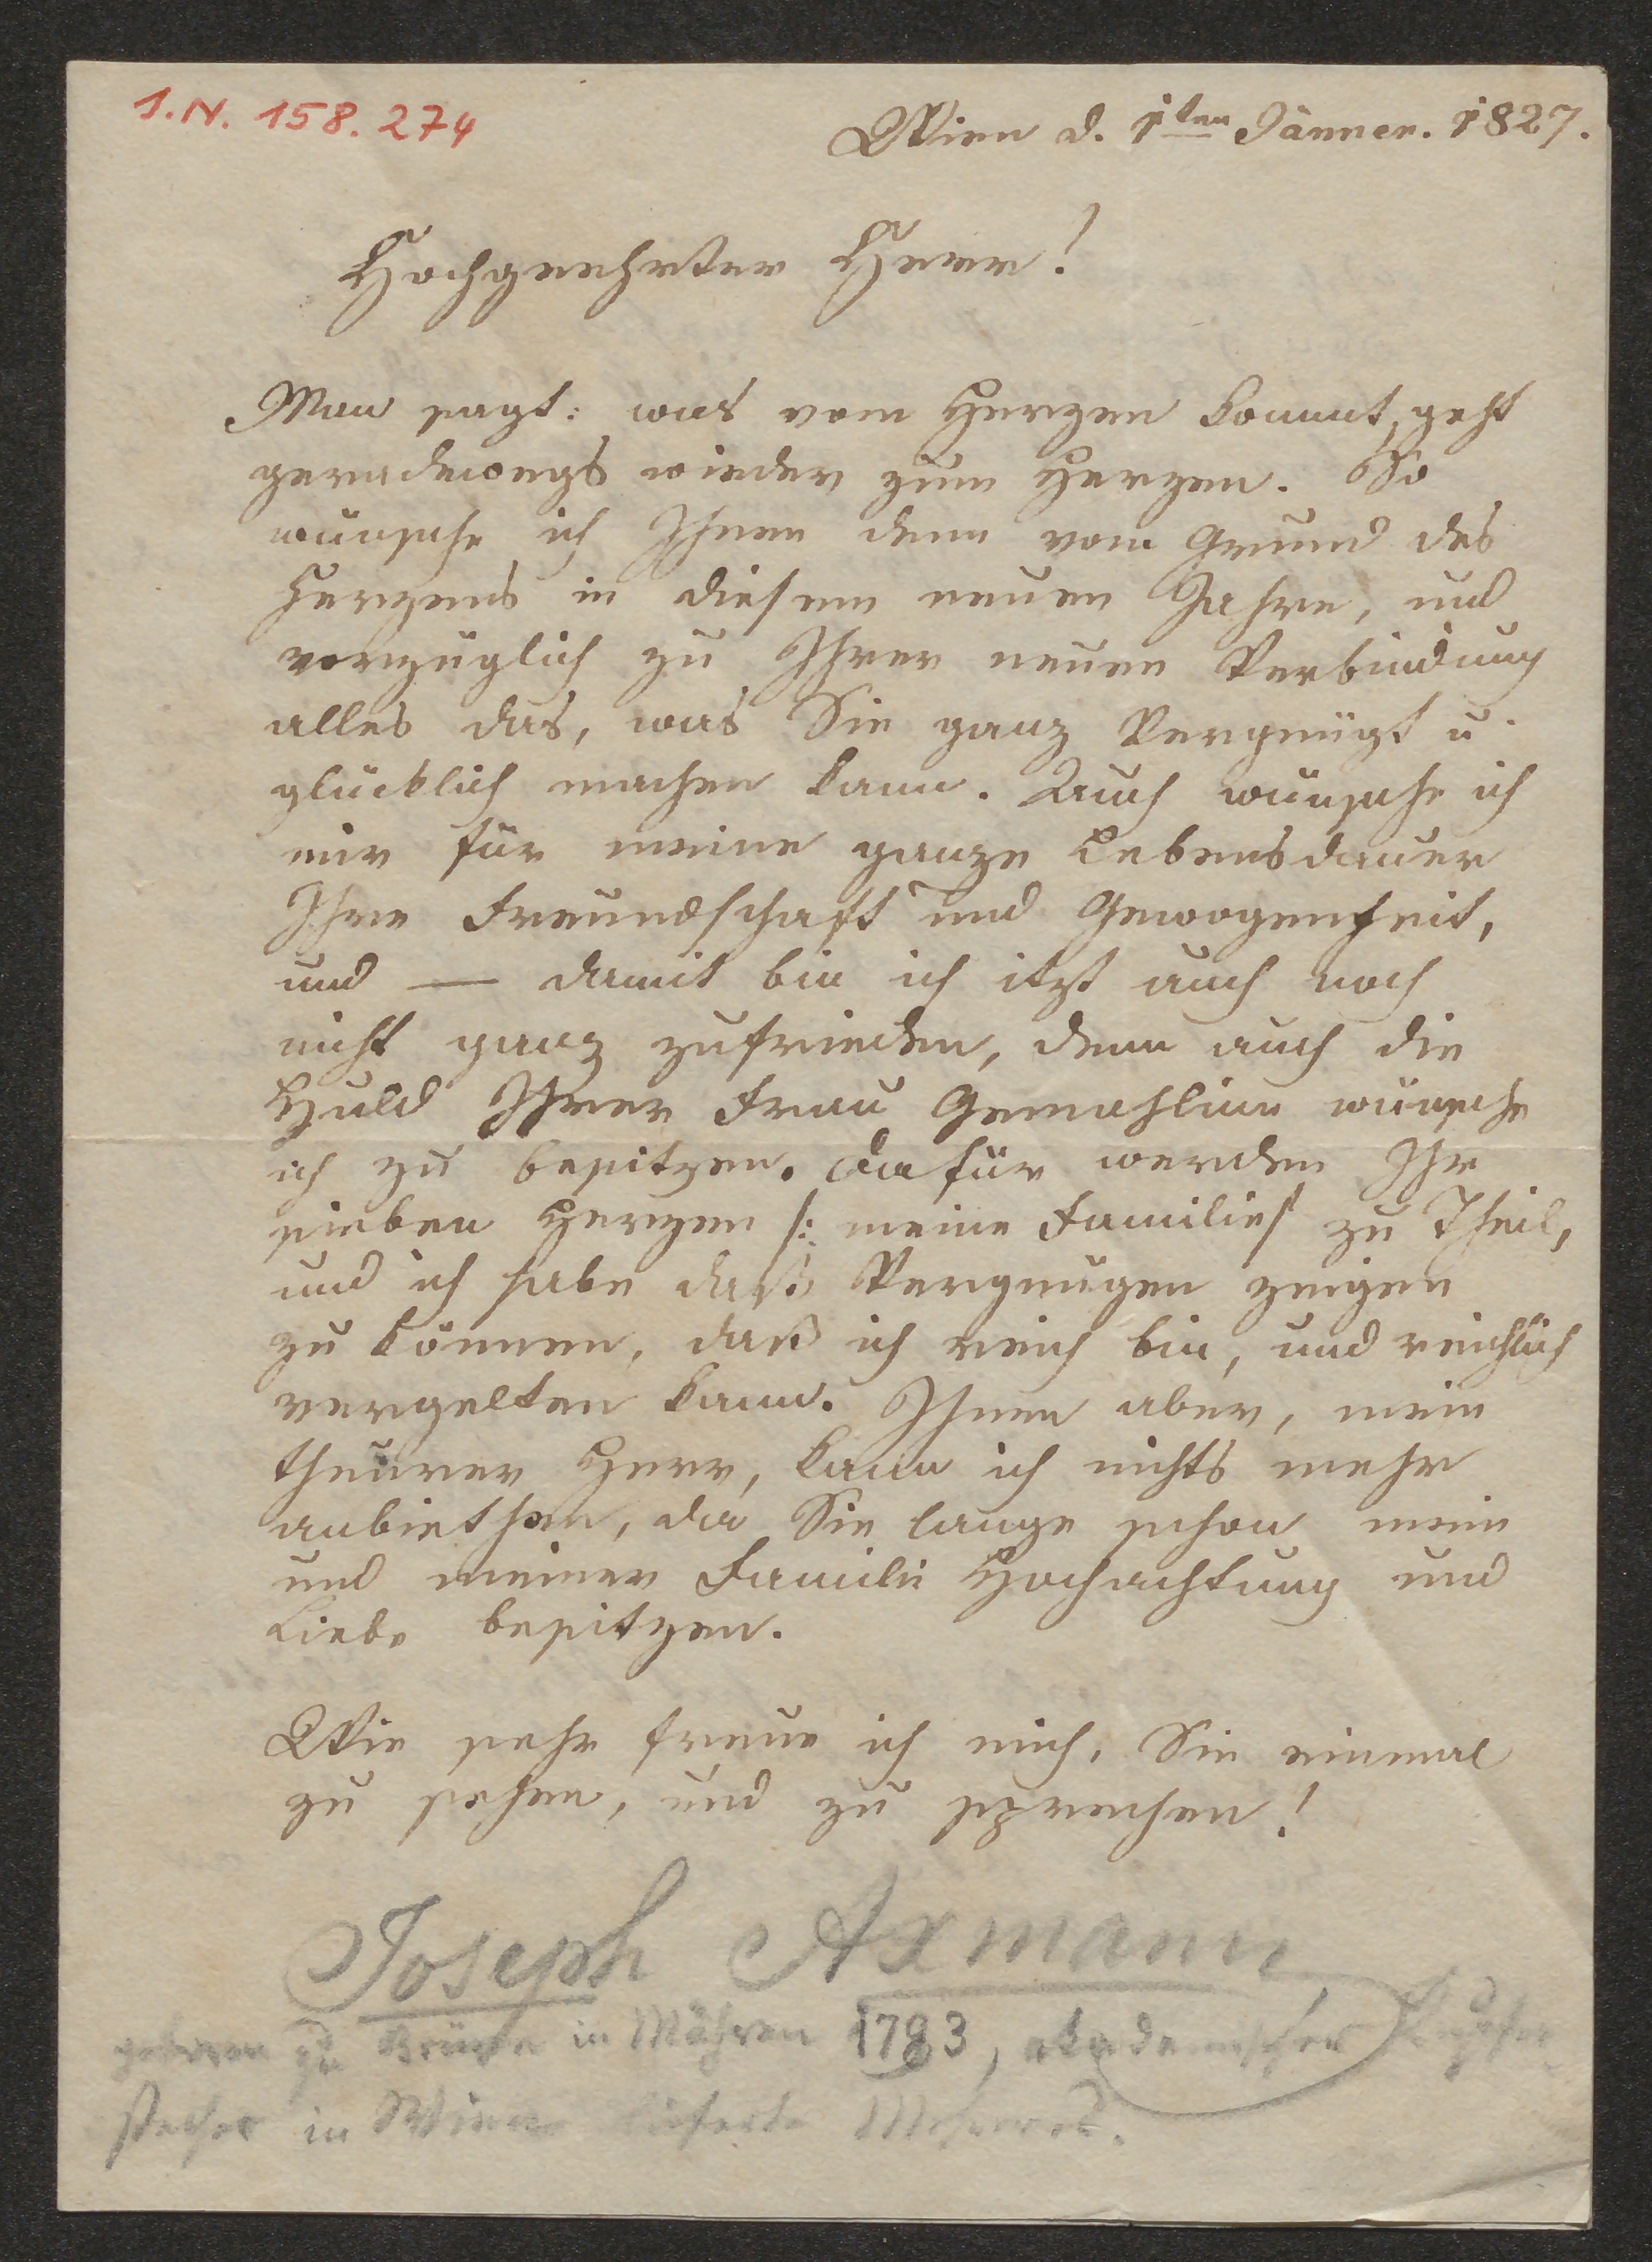 I.N. 158.274
Wien d. 1ten Jänner. 1827.
Hochgeehrter Herr!
Man sagt: was vom Herzen kommt, geht
geradewegs wieder zum Herzen. So
wünsche ich Ihnen denn vom Grund des
Herzens in diesem neuen Jahre, und
vorzüglich zu Ihrer neuen Verbindung
alles das, was Sie ganz Vergnügt u
glücklich machen kann. Auch wünsche ich
mir für meine ganze Lebensdauer
Ihre Freundschaft und Gewogenheit,
und — damit bin ich itzt auch noch
nicht ganz zufrieden, denn auch die
Huld Ihrer Frau Gemahlinn wünsche
ich zu besitzen. Dafür werden Ihr
sieben Herzen /: meine Familie/ zu Theil,
und ich habe daß Vergnügen zeigen
zu können, daß ich reich bin, und reichlich
vergelten kann. Ihnen aber, mein
theurer Herr, kann ich nichts mehr
anbiethen, da Sie lange schon mein
und meiner Familie Hochachtung und
Liebe besitzen.
Wie sehr freue ich mich, Sie einmal
zu sehen, und zu sprechen!
Joseph Axmann,
geboren zu Brünn in Mähren 1793, akademischer Kupfer
stecher in Wien lieferte Mehreres.